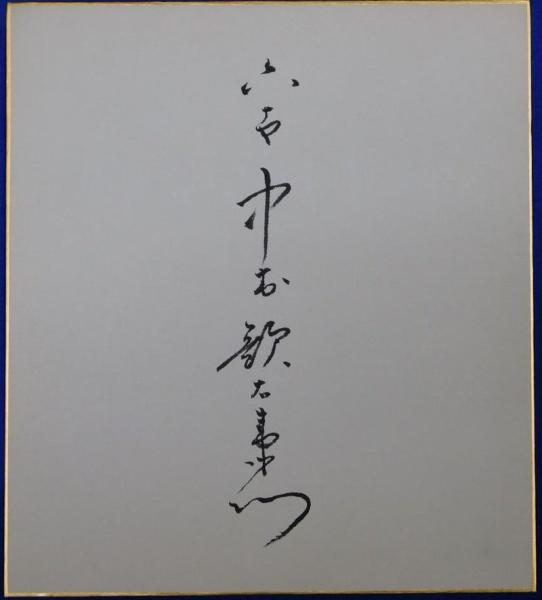 六世 中村歌右衛門